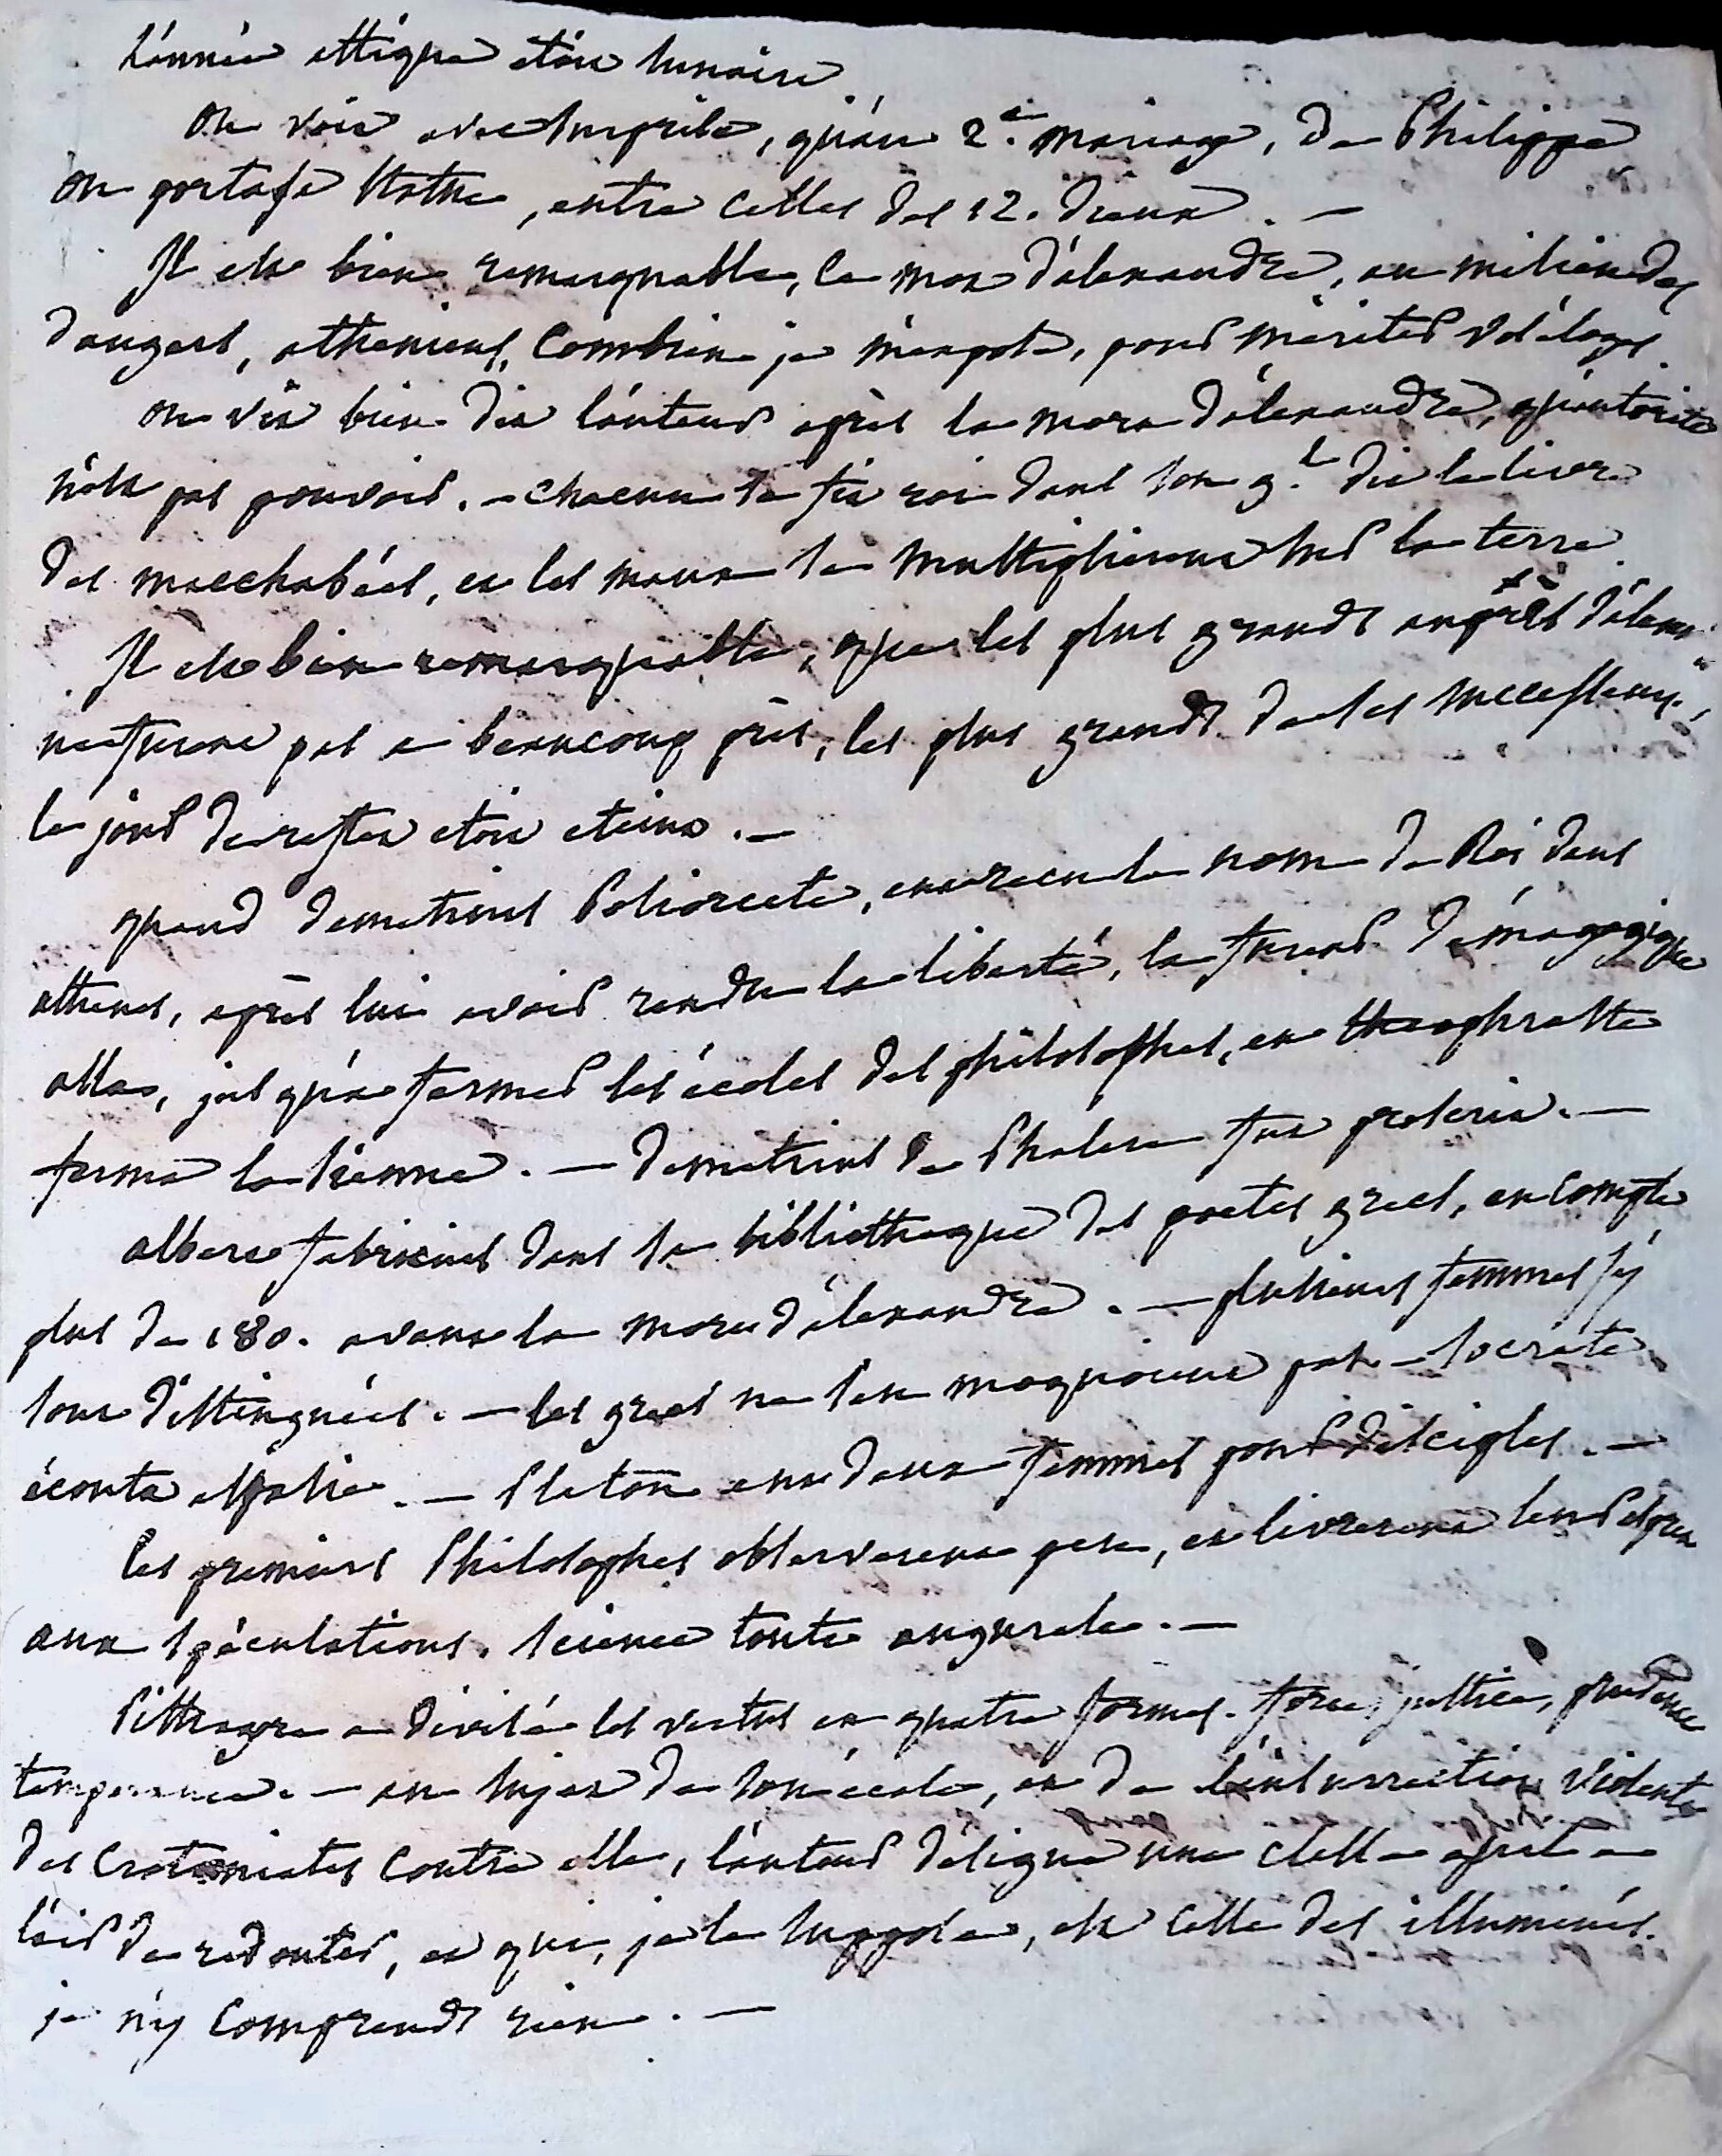 L'année attique étoit lunaire.
on voit avec surprise, qu'au 2.e mariage, de Philippe
on porta sa statue, entre celles des 12. dieux. —
Il est bien remarquable, ce mot d'alexandre, au milieu des
dangers, atheniens, combien je m'expose, pour mériter vos éloges.
on vit bien dit l'auteur après la mort d'alexandre, qu'autorité
n'est pas pouvoir. — chacun se fit roi dans son g.t dit le livre
des macchabées, et les maux se multiplièrent sur la terre.
Il est bien remarquable, que les plus grands auprès d'alex.
ne furent pas à beaucoup près, les plus grands de ses successeurs,
le jour de reflet étoit éteint. —
quand demetrius Poliorcete, eut recu le nom de Roi dans
athenes, après lui avoir rendu la liberté, la fureur démagogique
alla, jus qu'à fermer les écoles des philosophes, et theophraste
ferma la sienne. — demetrius de Phalere fut proscrit. —
albert fabricius dans sa bibliotheque des poetes grecs, en compte
plus de 180. avant la mort d'alexandre. — plusieurs femmes s'y
sont distinguées. — les grecs ne s'en moquoient pas — socrate
écouta aspasie. — Platon eut deux femmes pour disciples. —
Les premiers Philosophes observerent peu, et livrerent leur esprit
aux spéculations. science toute augurale. —
Pithagore a divisé les vertus en quatre formes. force, justice, prudence
temperance. — au sujet de son école, et de l'insurrection violente
des Crotoniates contre elle, l'auteur désigne une secte qu'il a
l'air de redouter, et qui, je le suppose, est celle des illuminés.
je n'y comprends rien. —